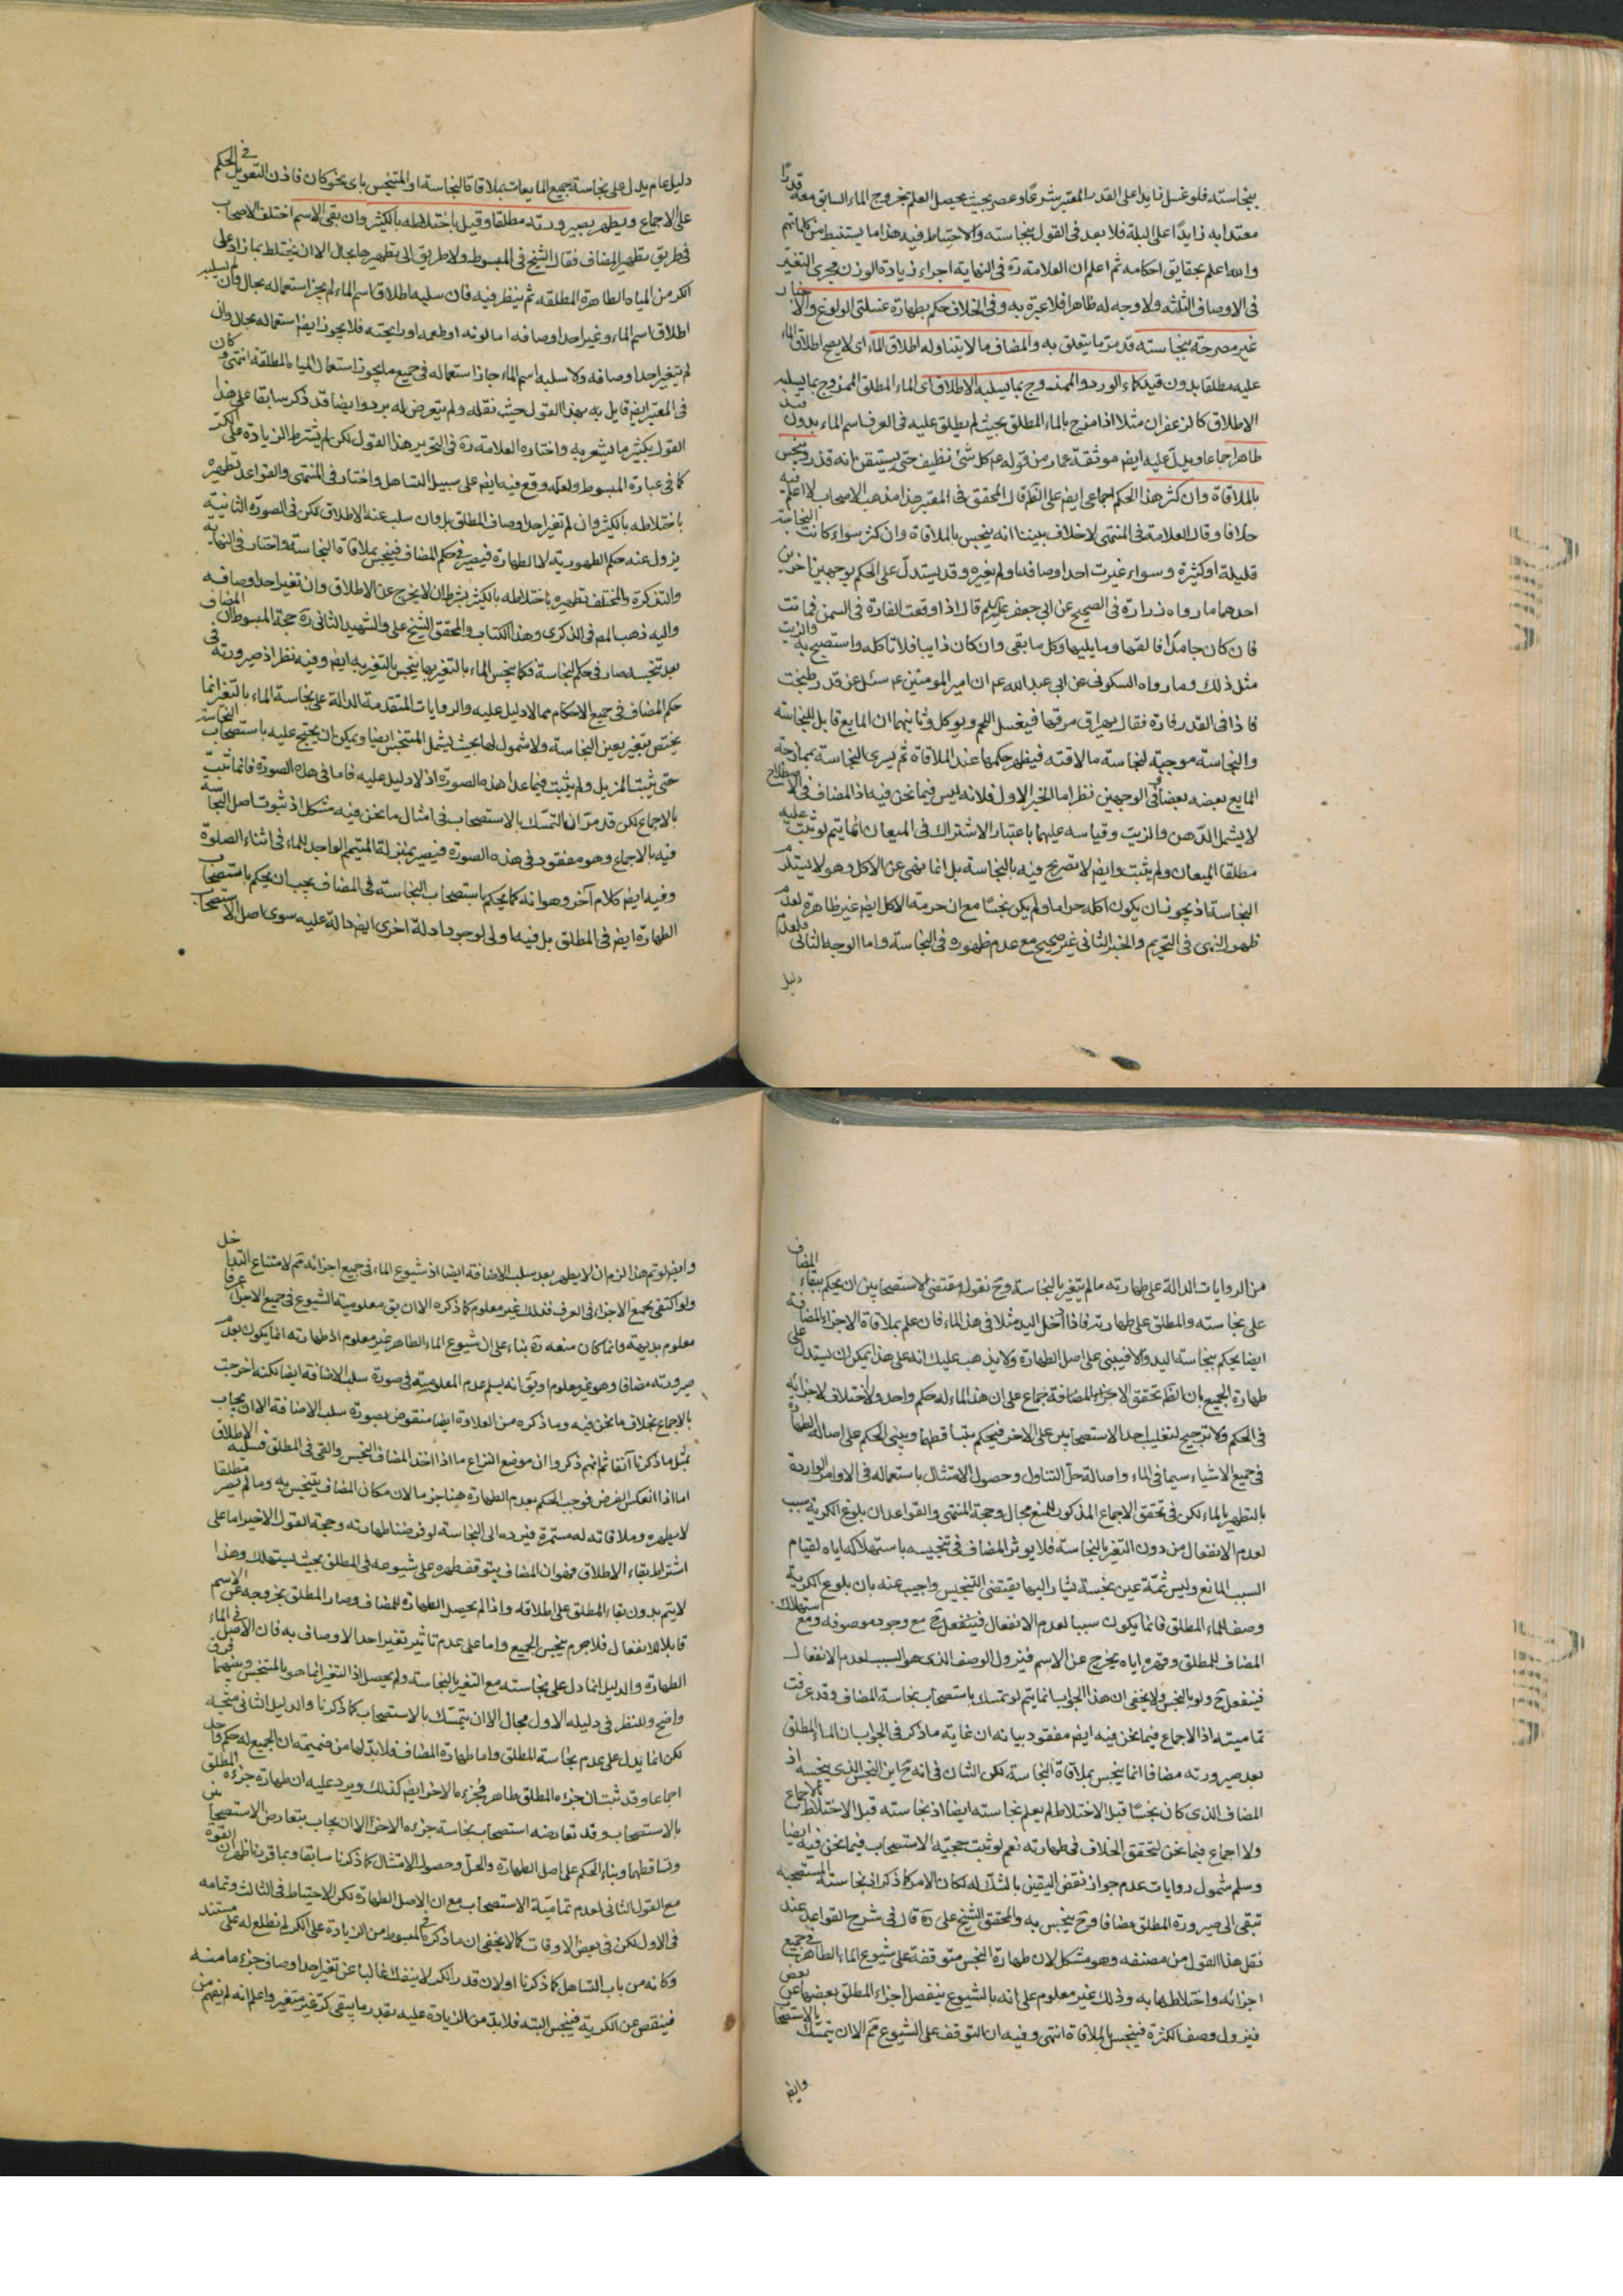 بنجاسته فلو غسل زايدا على القدر المعتبر شرعا وعصر بحيث يحصل العلم بخروج الماء السابق معه قدرا
معتدا به زايدا على البلة فلا بعد في القول بنجاسته والاحتياط فيه هذا ما يستنبط من كلماتهم
والله اعلم بحقايق احكامه ثم اعلم ان العلامة ره في النهاية اجراء زيادة الوزن مجرى التغير
في الاوصاف الثلثه ولا وجه له ظاهرا فلا عبرة به وفي الخلاف حكم بطهارة غسلتي الولوغ والاخبار
غير مصرحة بنجاسته قد مر ما يتعلق به والمضاف ما لا يتناوله اطلاق الماء اى لا يصح اطلاق الماء
عليه مطلقا بدون قيد كماء الورد والممزوج بما يسلبه الاطلاق اى الماء المطلق الممزوج بما يسلبه
الاطلاق كالزعفران مثلا اذا مزج بالماء المطلق بحيث لم يطلق عليه في العرف اسم الماء بدون قيد
طاهر اجماعا ويدل عليه ايضم موثقة عمار من قوله عم كل شئ نظيف حتى يستيقن انه قذر وينجس
بالملاقاة وان كثر هذا الحكم اجماعي ايضم على الظم قال المحقق في المعتبر هذا مذهب الاصحاب لا اعلم فيه
خلافا وقال العلامة في المنتهى لا خلاف بيننا انه ينجس بالملاقاة وان كثر سواء كانت النجاسة
قليلة او كثيرة وسواء غيرت احد اوصافه او لم يغيره وقد يستدل على الحكم بوجهين اخرين
احدهما ما رواه زرارة في الصحيح عن ابي جعفر عليه السلم قال اذا وقعت الفارة في السمن فماتت
فان كان جامدا فالقها وما يليها وكل ما بقى وان كان ذايبا فلا تاكله واستصبح به والزيت
مثل ذلك وما رواه السكوني عن ابي عبد الله عم ان امير المومنين عم سئل عن قدر طبخت
فاذا في القدر فارة فقال يهراق مرقها فيغسل اللحم ويوكل وثانيهما ان المايع قابل للنجاسه
والنجاسة موجبة لنجاسة ما لاقته فيظهر حكمها عند الملاقاة ثم يسرى النجاسة بممازجة
المايع بعضه بعضا وفي الوجهين نظر اما الخبر الاول فلانه ليس فيما نحن فيه اذ المضاف في الاصطلاح
لا يشمل الدهن والزيت وقياسه عليهما باعتبار الاشتراك في الميعان انما يتم لو ثبت عليه
مطلقا الميعان ولم يثبت وايضم لا تصريح فيه بالنجاسة بل انما نهى عن الاكل وهو لا يستلزم
النجاسة اذ يجوز ان يكون اكله حراما ولم يكن نجسا مع ان حرمة الاكل ايضم غير ظاهرة لعدم
ظهور النهي في التحريم والخبر الثاني غير صحيح مع عدم ظهوره في النجاسة واما الوجه الثاني فلعدم
دليل
دليل عام يدل على نجاسة جميع المايعات بملاقاة النجاسة او المتنجس باى نحو كان فاذن التعويل في الحكم
على الاجماع ويطهر بصيرورته مطلقا وقيل باختلاطه بالكثير وان بقى الاسم اختلف الاصحاب
في طريق تطهير المضاف فقال الشيخ في المبسوط ولا طريق الى تطهيرها بحال الا ان يختلط بما زاد على
الكر من المياه الطاهرة المطلقه ثم ينظر فيه فان سلبه اطلاق اسم الماء لم يجز استعماله بحال وان لم يسلبه
اطلاق اسم الماء وغير احد اوصافه اما لونه او طعمه او رايحته فلا يجوز ايضم استعماله بحال وان
لم يتغير احد اوصافه ولا سلبه اسم الماء جاز استعماله في جميع ما يجوز استعمال المياه المطلقة انتهى وكان
في المعتبر ايضم قايل به بهذا القول حيث نقله ولم يتعرض له برد وايضا قد ذكر سابقا على هذا
القول بكثير ما يشعر به واختاره العلامة ره في التحرير هذا القول لكن لم يشترط الزيادة على الكر
كما في عبارة المبسوط ولعله وقع فيه ايضم على سبيل التساهل واختار في المنتهى والقواعد تطهيره
باختلاطه بالكثير وان لم تغير احد اوصاف المطلق بل وان سلب عنه الاطلاق لكن في الصورة الثانية
يزول عنه حكم الطهورية لا الطهارة فيصير في حكم المضاف فينجس بملاقاة النجاسة واختار في النهاية
والتذكرة والمختلف تطهيره باختلاطه بالكثير بشرط ان لا يخرج عن الاطلاق وان تغير احد اوصافه
واليه ذهب المصم في الذكرى وهذا الكتاب والمحقق الشيخ على والشهيد الثاني ره حجة المبسوط ان المضاف
بعد تنجسه صار في حكم النجاسة فكما ينجس الماء بالتغير بها ينجس بالتغير به ايضم وفيه نظر اذ صيرورته في
حكم المضاف في جميع الاحكام مما لا دليل عليه والروايات المتقدمة الدالة على نجاسة الماء بالتغير انما
يختص بتغيره بعين النجاسة ولا شمول لها بحيث يشمل المتنجس ايضا ويمكن ان يحتج عليه باستصحاب النجاسة
حتى يثبت المزيل ولم يثبت فيما عدا هذه الصورة اذ لا دليل عليه فاما في هذه الصورة فانما ثبت
بالاجماع لكن قد مر ان التمسك بالاستصحاب في امثال ما نحن فيه مشكل اذ ثبوت اصل النجاسة
فيه بالاجماع وهو مفقود في هذه الصورة فيصير بمنزلة المتيمم الواجد للماء في اثناء الصلوة
وفيه ايضم كلام آخر وهو انه كما يحكم باستصحاب النجاسة في المضاف يجب ان يحكم باستصحاب
الطهارة ايضم في المطلق بل فيه اولى لوجود ادلة اخرى ايضم دالة عليه سوى اصل الاستصحاب
من الروايات الدالة على طهارته ما لم يتغير بالنجاسة وح نقول مقتضى الاستصحابين ان يحكم ببقاء المضاف
على نجاسته والمطلق على طهارته فاذا ادخل اليد مثلا في هذا الماء فان علم بملاقاة الاجزاء المضافة
ايضا يحكم بنجاسة اليد والا فيبنى على اصل الطهارة ولا يذهب عليك انه على هذا يمكن ان يستدل على
طهارة الجميع بان الظم تحقق الاجماع على ان هذا الماء له حكم واحد ولا اختلاف لاجزائه
في الحكم ولا ترجيح لتغليب احد الاستصحابين على الاخر فيحكم بتساقطهما ويبنى الحكم على اصالة الطهارة
في جميع الاشياء سيما في الماء واصالة حل التناول وحصول الامتثال باستعماله في الاوامر الواردة
بالتطهير بالماء لكن في تحقق الاجماع المذكور للمنع مجال وحجة المنتهى والقواعد ان بلوغ الكرية سبب
لعدم الانفعال من دون التغير بالنجاسة فلا يوثر المضاف في تنجيسه باستهلاكه اياه لقيام
السبب المانع وليس ثمة عين نجسة يشار اليها يقتضى التنجيس واجيب عنه بان بلوغ الكرية
وصف للماء المطلق فانما يكون سببا لعدم الانفعال مع وجود موصوفه ومع استهلاك
المضاف للمطلق وقهره اياه يخرج عن الاسم فيزول الوصف الذى هو السبب لعدم الانفعال
فينفعل ح ولو بالنجس ولا يخفى ان هذا الجواب انما يتم لو تمسك باستصحاب نجاسة المضاف وقد عرفت
تماميته اذ الاجماع فيما نحن فيه ايضم مفقود بيانه ان غاية ما ذكر في الجواب ان الماء المطلق
بعد صيرورته مضافا انما ينجس بملاقاة النجاسة لكن الشان في انه ح اين النجس الذى ينجسه اذ
المضاف الذى كان نجسا قبل الاختلاط لم يعلم نجاسته ايضا اذ نجاسته قبل الاختلاط بالاجماع
ولا اجماع فيما نحن لتحقق الخلاف في طهارته نعم لو ثبت حجية الاستصحاب فيما نحن فيه ايضا
وسلم شمول روايات عدم جواز نقض اليقين بالشك له لكان الامر كما ذكر اذ نجاسته المستصحبة
تبقى الى صيرورة المطلق مضافا وح ينجس به والمحقق الشيخ على ره قال في شرح القواعد عند
نقل هذا القول من مصنفه وهو مشكل لان طهارة النجس متوقفة على شيوع الماء الطاهر في جميع
اجزائه واختلاطها به وذلك غير معلوم على انه بالشيوع ينفصل اجزاء المطلق بعضها عن بعض
فيزول وصف الكثرة فينجس بالملاقاة انتهى وفيه ان التوقف على الشيوع مم الا ان يتمسك بالاستصحاب
وايضم
وايضم لو تم هذا لزم ان لا يطهر بعد سلب الاضافة ايضا اذ شيوع الماء في جميع اجزائه مم لامتناع التداخل
ولو اكتفى بجميع الاجزاء في العرف فذلك غير معلوم كما ذكره الا ان يق معلومية الشيوع في جميع الاجزاء عرفا
معلوم بديهة وانما كان منعه ره بناء على ان شيوع الماء الطاهر غير معلوم اذ طهارته انما يكون بعدم
صيرورته مضافا وهو غير معلوم او يق انه يسلم عدم المعلومية في صورة سلب الاضافة ايضا لكنه اخرجت
بالاجماع بخلاف ما نحن فيه وما ذكره من العلاوة ايضا منقوض بصورة سلب الاضافة الا ان يجاب
بمثل ما ذكرنا آنفا ثم انهم ذكروا ان موضع النزاع ما اذا اخذ المضاف النجس والقى في المطلق فسلبه الاطلاق
اما اذا انعكس الفرض فوجب الحكم بعدم الطهارة هنا جزما لان مكان المضاف يتنجس به وما لم يصر مطلقا
لا يطهره وملاقاته له مستمرة فيرده الى النجاسة لو فرضنا طهارته وحجة القول الاخير اما على
اشتراط بقاء الاطلاق فهو ان المضاف يتوقف طهره على شيوعه في المطلق بحيث يستهلك وهذا
لا يتم بدون بقاء المطلق على اطلاقه واذا لم يحصل الطهارة للمضاف وصار المطلق بخروجه عن الاسم
قابلا للانفعال فلا جرم ينجس الجميع واما على عدم تاثير تغير احد الاوصاف به فان الاصل في الماء
الطهارة والدليل انما دل على نجاسته مع التغير بالنجاسة ولم يحصل اذ التغير انما هو بالمتنجس وبينهما فرق
واضح وللنظر في دليله الاول مجال الا ان يتمسك بالاستصحاب كما ذكرنا والدليل الثاني متجه
لكن انما يدل على عدم نجاسة المطلق واما طهارة المضاف فلا بد لها من ضميمة ان الجميع له حكم واحد
اجماعا وقد ثبت ان جزءه المطلق طاهر فجزءه الاخر ايضم كذلك ويرد عليه ان طهارة جزءه المطلق
بالاستصحاب وقد تعارضه استصحاب نجاسة جزءه الاخر الا ان يجاب بتعارض الاستصحابين
وتساقطهما وبناء الحكم على اصل الطهارة والحل وحصول الامتثال كما ذكرنا سابقا وبما قررنا ظهر ان القوة
مع القول الثاني لعدم تمامية الاستصحاب مع ان الاصل الطهارة لكن الاحتياط في الثالث وتمامه
في الاول لكن في بعض الاوقات كما لا يخفى ان ما ذكره في المبسوط من الزيادة على الكر لم نطلع له على مستند
وكانه من باب التساهل كما ذكرنا او لان قدر الكر لا ينفك غالبا عن تغير احد اوصاف جزء ما منه
فينقص عن الكرية فينجس البته فلا بد من الزيادة عليه بقدر ما يبقى كر غير متغير واعلم انه لم يفهم من